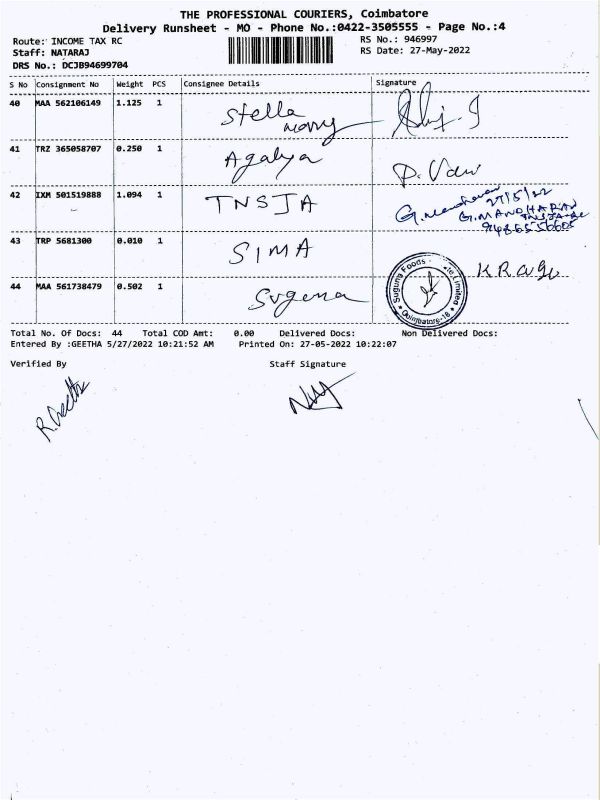 THE PROFESSIONAL COURIERS, Coimbatore
Delivery Runsheet - MO - Phone No.:0422-3505555 - Page No.:4
Route: INCOME TAX RC RS No.: 946997
Staff: NATARAJ RS Date: 27-May-2022
DRS No.: DCJB94699704
S No Consignment No Weight PCS Consignee Details Signature
40 MAA 562106149 1.125 1 Stella
mary
41 TRZ 365058707 0.250 1 Agalya
42 IXM 501519888 1.094 1 TNSJA 27/5/22
G.MANOHARAN
43 TRP 5681300 0.010 1 SIMA
44 MAA 561738479 0.502 1 Suguna Suguna Foods Limited Coimbatore-18
Total No. Of Docs: 44 Total COD Amt: 0.00 Delivered Docs: Non Delivered Docs:
Entered By :GEETHA 5/27/2022 10:21:52 AM Printed On: 27-05-2022 10:22:07
Verified By Staff Signature
R.Geetha